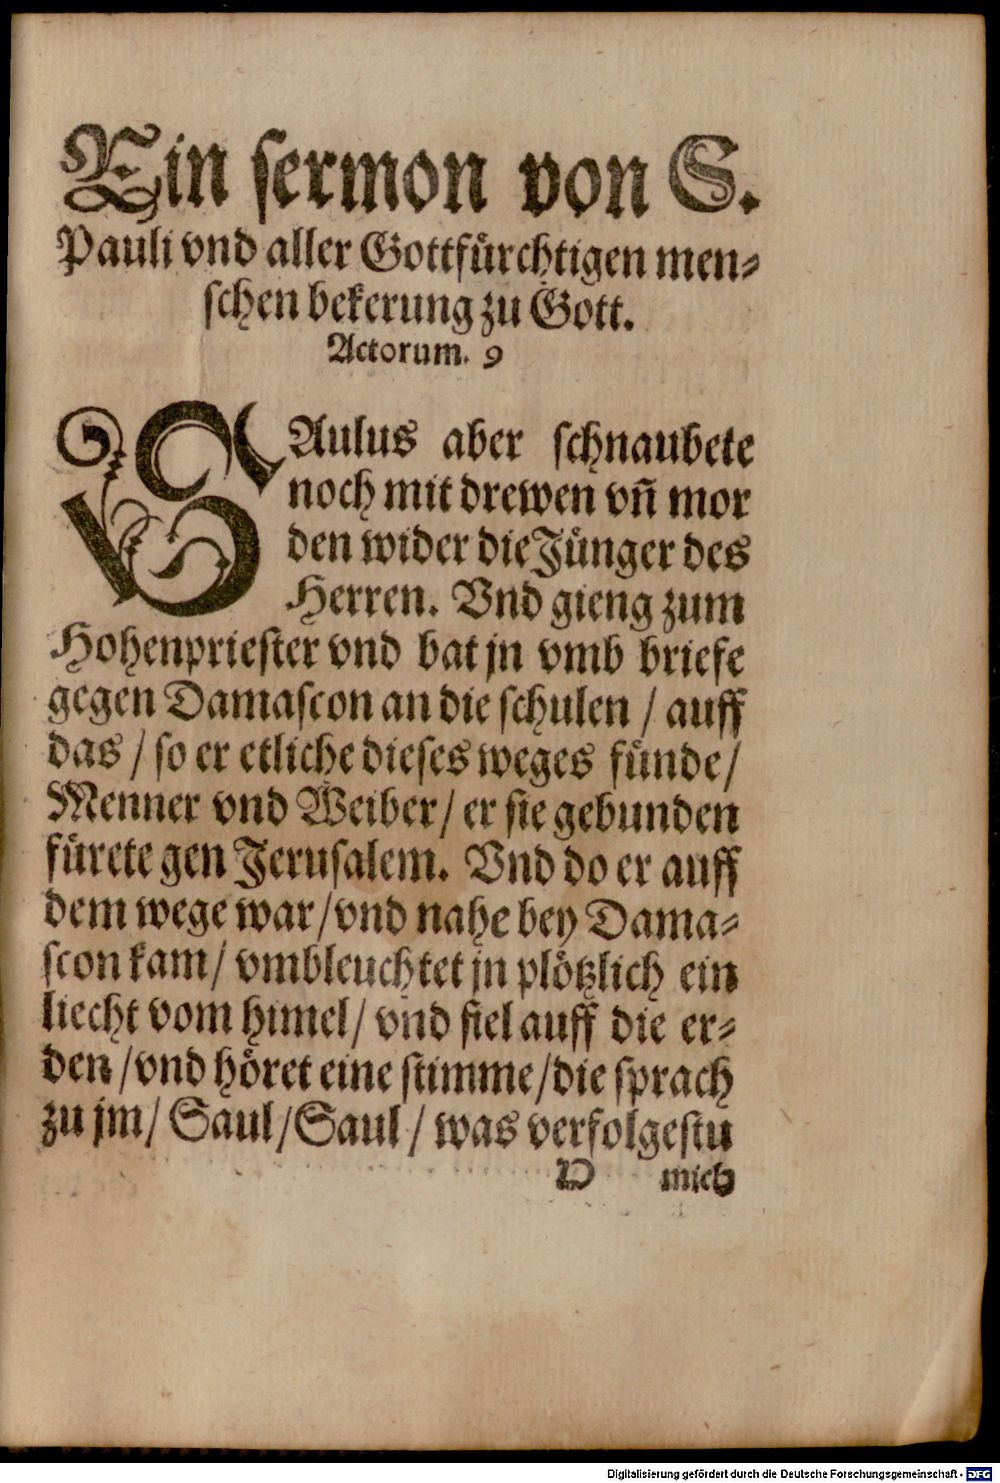 Ein sermon von S.
Pauli vnd aller Gottfürchtigen men⸗
schen bekerung zu Gott.
Actorum. 9
SAulus aber schnaubete
noch mit drewen vn̄ mor
den wider die Jünger des
Herren. Vnd gieng zum
Hohenpriester vnd bat jn vmb briefe
gegen Damascon an die schulen / auff
das / so er etliche dieses weges fünde /
Menner vnd Weiber / er sie gebunden
fürete gen Jerusalem. Vnd do er auff
dem wege war / vnd nahe bey Dama⸗
scon kam / vmbleuchtet jn plötzlich ein
liecht vom himel / vnd fiel auff die er⸗
den / vnd höret eine stimme / die sprach
zu jm / Saul / Saul / was verfolgestu
D mich
Digitalisierung gefördert durch die Deutsche Forschungsgemeinschaft - DFG